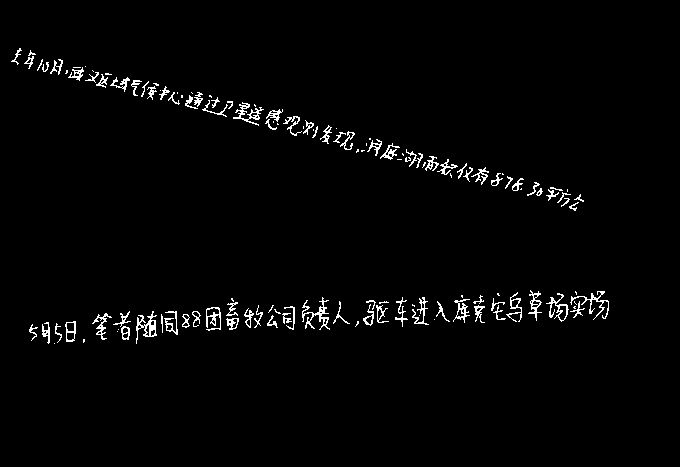 去年10月,武汉区域气候中心通过卫星遥感观测发现,洞庭湖面积仅有878.30平方公
5月5日,笔者随同88团畜牧公司负责人,驱车进入库克它乌草场实场